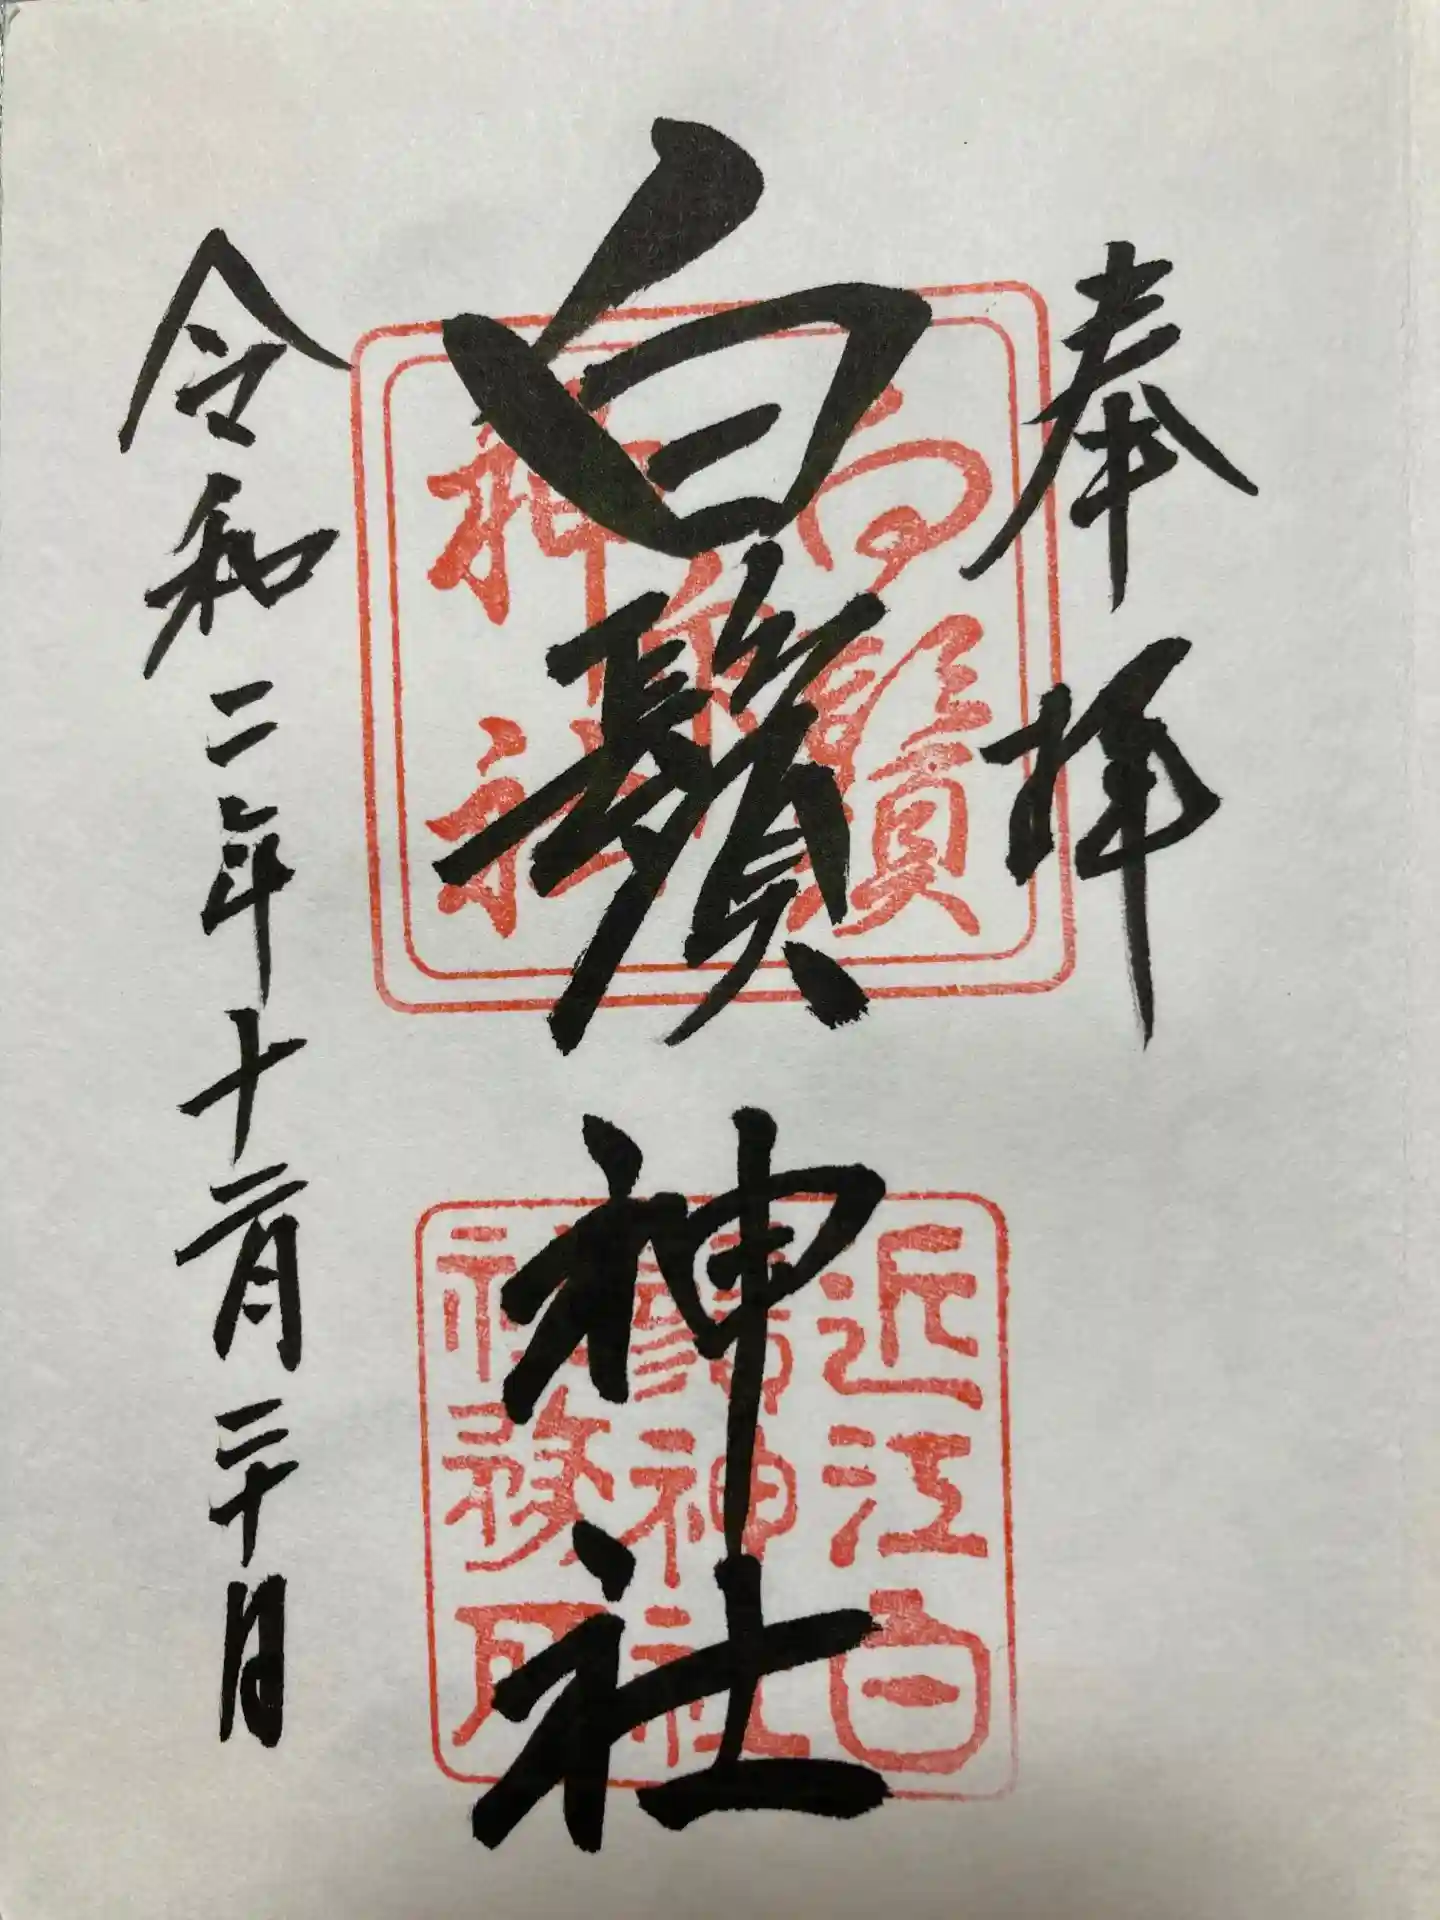 奉拝
白鬚神社
令和二年十二月二十日
白鬚
神社
近江白
鬚神社
社務所